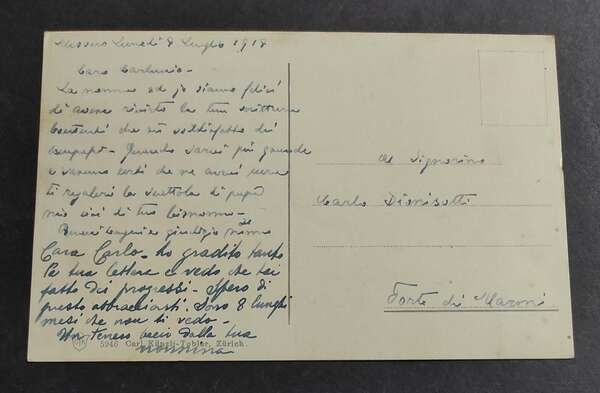 Lunedì 8 Luglio 1918
Caro Carluccio -
La nonna ed io siamo felici
di avere rivisto la tua scrittura
che sei soddisfatto dei
Quando sarai più grande
e saremo certi che ne avrai cura
ti regalerò la di papà
di tuo bisnonno -
Buoni bagni e giudizio
Caro Carlo - ho gradito tanto
la tua lettera e vedo che hai
fatto dei progressi - Spero di
presto abbracciarti. Sono 8 lunghi
mesi che non ti vedo -
Un tenero bacio dalla tua
nonnina
5940 Carl Künzli-Tobler, Zürich.
Al Signorino
Carlo Dionisotti
Forte dei Marmi